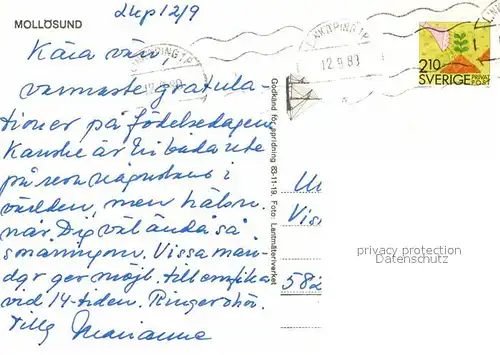 MOLLÖSUND
Lkp 12/9
Kära vän,
varmaste gratula-
tioner på födelsedagen.
Kanske är Ni båda ute
på resa någonstans i
världen, men hälsn.
når Dig väl ändå så
småningom. Vissa mån-
dgr ger möjl. till
vid 14-tiden. Ringer
Tilly Marianne
Godkänd för spridning 83-11-19. Foto: Lantmäteriverket
LINKÖPING 1 P
12.9.89
2.10
SVERIGE PRIVAT POST
582
privacy protection
Datenschutz